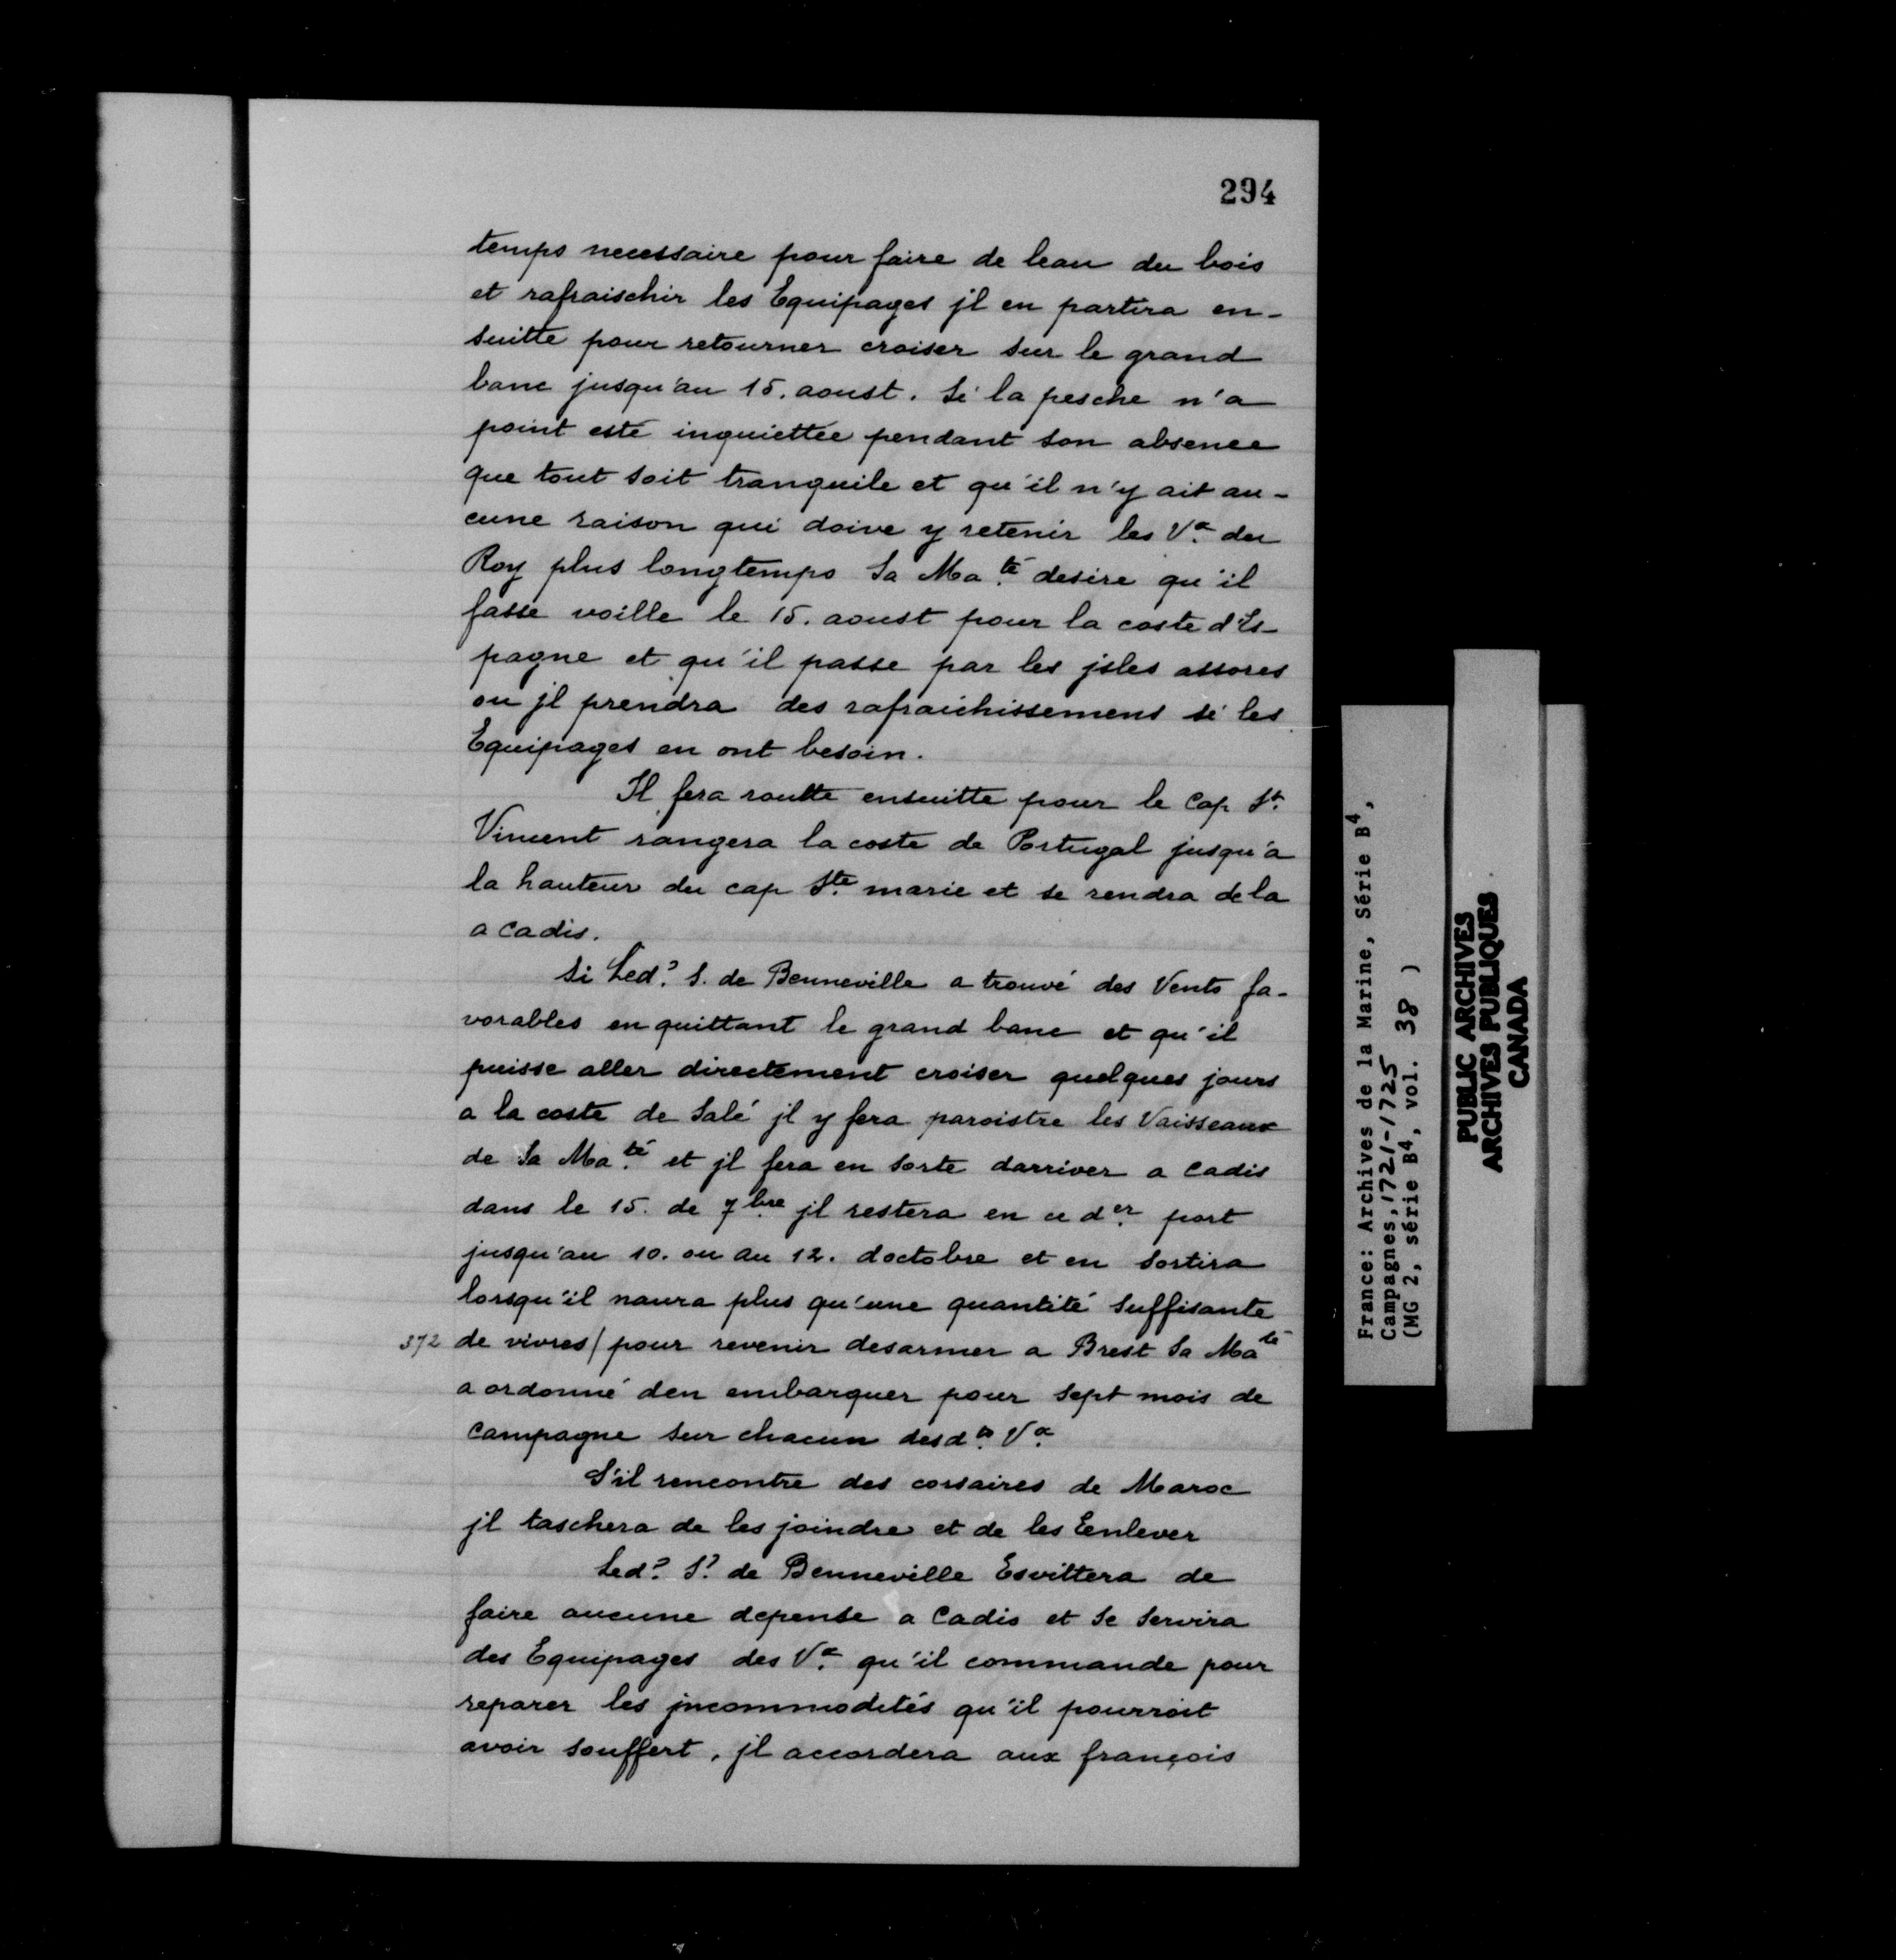 294
temps necessaire pour faire de leau du bois
et rafraischir les Equipages jl en partira en-
suitte pour retourner croiser sur le grand
banc jusqu'au 15. aoust. Si la pesche n'a
point esté inquiettée pendant son absence
que tout soit tranquile et qu'il n'y ait au-
cune raison qui doive y retenir les Vx. du
Roy plus longtemps Sa Ma.té desire qu'il
fasse voille le 15. aoust pour la coste d'Es-
pagne et qu'il passe par les jsles assores
ou jl prendra des rafraichissemens si les
Equipages en ont besoin.
Il fera routte ensuitte pour le Cap St.
Vincent rangera la coste de Portugal jusqu'a
la hauteur du cap Ste. marie et se rendra de la
a cadis.
Si Led? S. de Benneville a trouvé des Vents fa-
vorables en quittant le grand banc et qu'il
puisse aller directement croiser quelques jours
a la coste de Salé jl y fera paroistre les Vaisseaux
de Sa Ma.té et jl fera en sorte darriver a cadis
dans le 15. de 7bre jl restera en ce der. port
jusqu'au 10. ou au 12. doctobre et en sortira
lorsqu'il naura plus qu'une quantité suffisante
372 de vivres/ pour revenir desarmer a Brest Sa Maté
a ordonné den embarquer pour sept mois de
campagne sur chacun desd.ts Vx.
S'il rencontre des corsaires de Maroc
jl taschera de les joindre et de les Enlever
Led? S? de Benneville Esvittera de
faire aucune depense a Cadis et se servira
des Equipages des Vx. qu'il commande pour
reparer les jncommodités qu'il pourroit
avoir souffert. jl accordera aux françois
France: Archives de la Marine, Série B4,
Campagnes, 1721-1725
(MG 2, série B4, vol. 38 )
PUBLIC ARCHIVES
ARCHIVES PUBLIQUES
CANADA